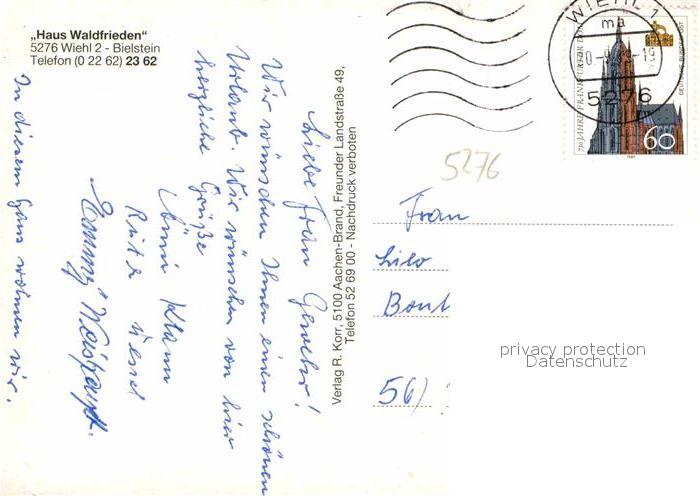 „Haus Waldfrieden"
5276 Wiehl 2 - Bielstein
Telefon (0 22 62) 23 62
Liebe Frau
Wir wünschen Ihnen einen schönen
Urlaub. Wir wünschen von hier
herzliche Grüße
Änni Klamm
In diesem Haus wohnen wir.
Verlag R. Korr, 5100 Aachen-Brand, Freunder Landstraße 49,
Telefon 52 69 00 - Nachdruck verboten
WIEHL 1
ma
5276
750 JAHRE FRANKFURTER DOM
DEUTSCHE BUNDESPOST
60
5276
Frau
56
privacy protection
Datenschutz